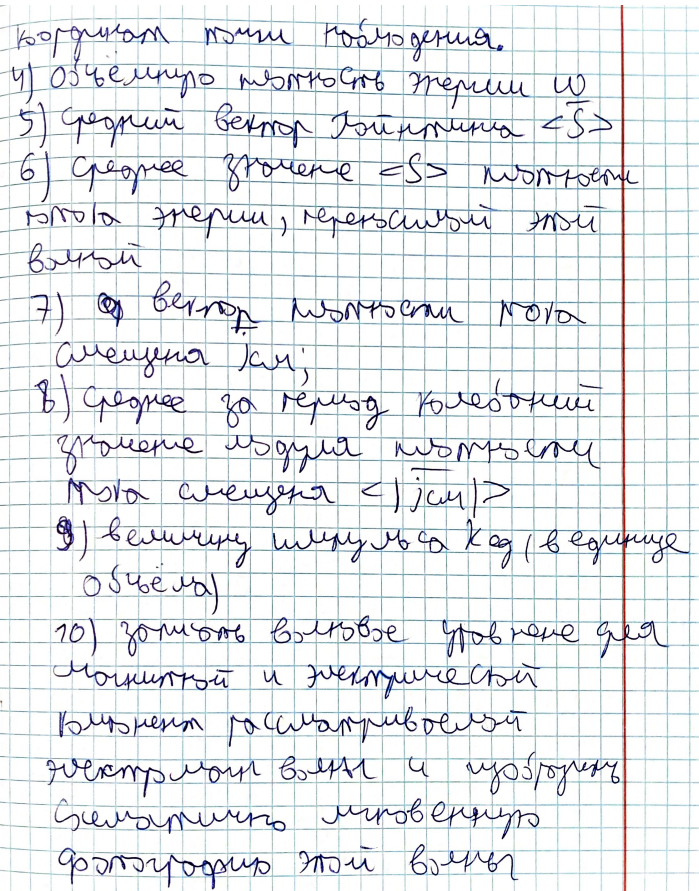 координат точки наблюдения.
4) Объёмную плотность энергии w
5) Средний вектор Пойнтинга <S̅>
6) Среднее значене <S> плотности
потока энергии, переносимой этой
волной
7) вектор плотности тока
смещеня jсм;
8) Среднее за период колебаний
значене модуля плотности
тока смещеня <|j̅см|>
9) величину импульса Kед (в единице
объёма)
10) записать волновое уравнене для
магнитной и электрической
компонент рассматриваемой
электрмагн волны и изобразить
схематично мгновенную
фотографию этой волны